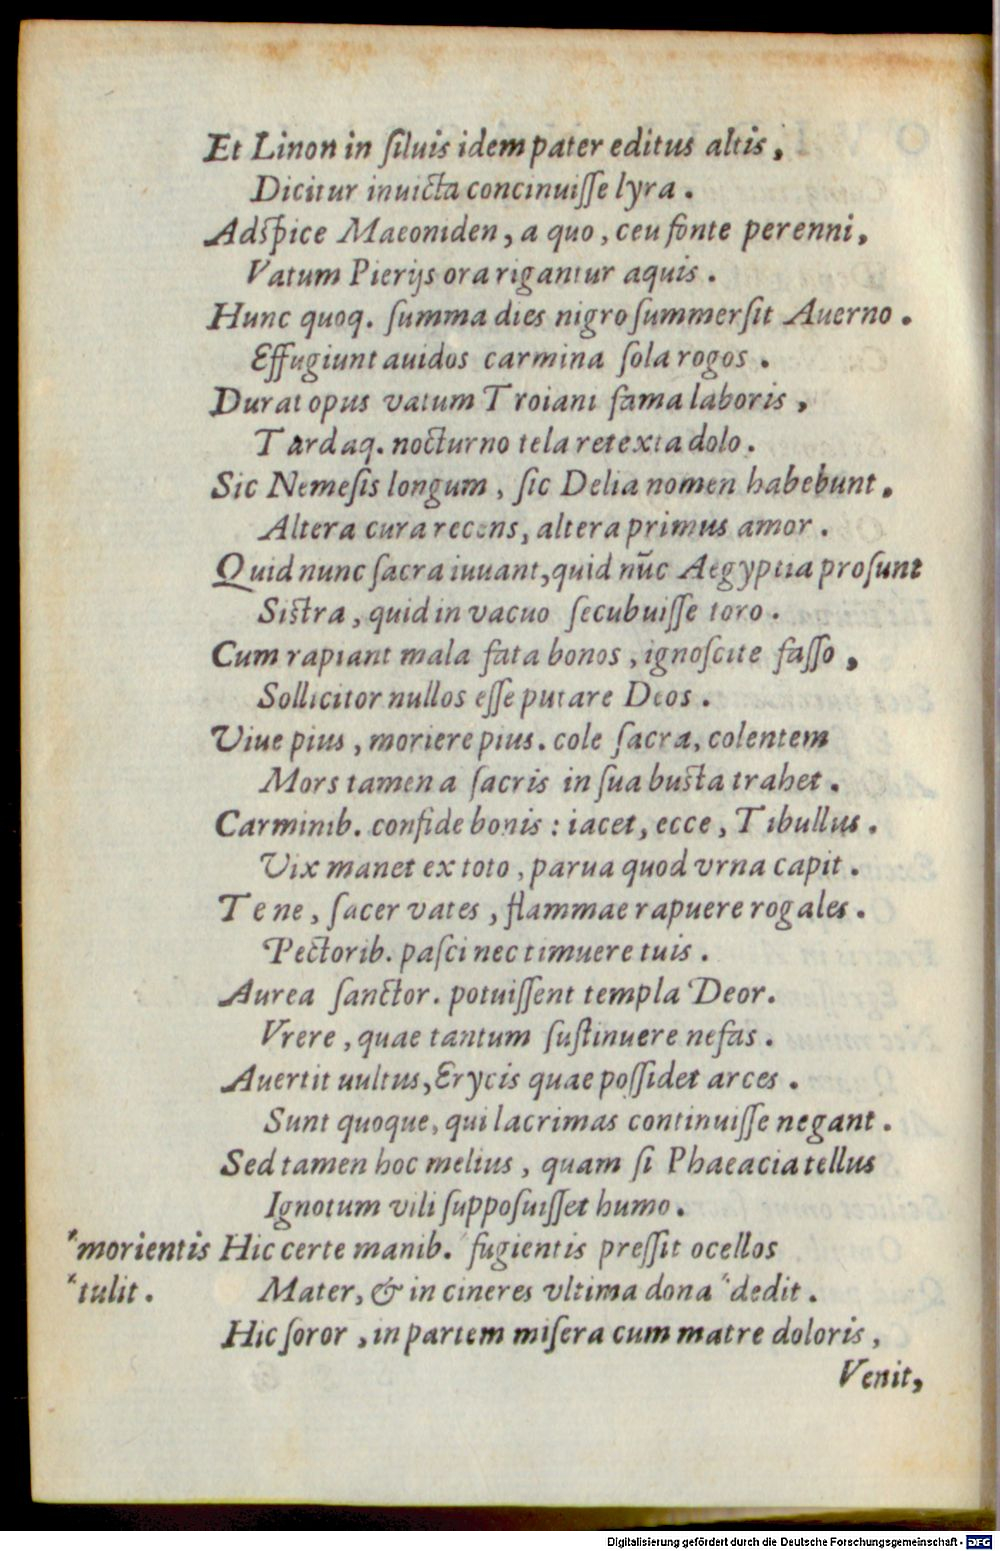 Et Linon in ſiluis idem pater editus altis,
Dicitur inuicta concinuiſſe lyra.
Adſpice Maeoniden, a quo, ceu fonte perenni,
Vatum Pierijs ora rigantur aquis.
Hunc quoq. ſumma dies nigro ſummerſit Auerno.
Effugiunt auidos carmina ſola rogos.
Durat opus vatum Troiani fama laboris,
Tardaq. nocturno tela retexta dolo.
Sic Nemeſis longum, ſic Delia nomen habebunt.
Altera cura recens, altera primus amor.
Quid nunc ſacra iuuant, quid nūc Aegyptia proſunt
Siſtra, quid in vacuo ſecubuiſſe toro.
Cum rapiant mala fata bonos, ignoſcite faſſo,
Sollicitor nullos eſſe putare Deos.
Viue pius, moriere pius. cole ſacra, colentem
Mors tamen a ſacris in ſua buſta trahet.
Carminib. confide bonis: iacet, ecce, Tibullus.
Vix manet ex toto, parua quod vrna capit.
Te ne, ſacer vates, flammae rapuere rogales.
Pectorib. paſci nec timuere tuis.
Aurea ſanctor. potuiſſent templa Deor.
Vrere, quae tantum ſuſtinuere nefas.
Auertit uultus, Erycis quae poſſidet arces.
Sunt quoque, qui lacrimas continuiſſe negant.
Sed tamen hoc melius, quam ſi Phaeacia tellus
Ignotum vili ſuppoſuiſſet humo.
"morientis Hic certe manib. "fugientis preſſit ocellos
"tulit. Mater, & in cineres vltima dona "dedit.
Hic ſoror, in partem miſera cum matre doloris,
Venit,
Digitalisierung gefördert durch die Deutsche Forschungsgemeinschaft - DFG